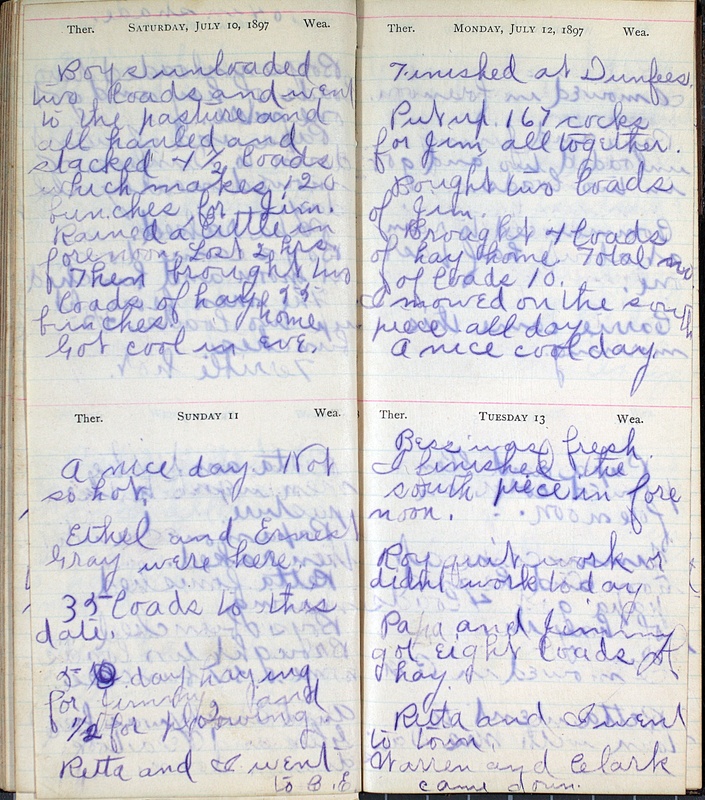 Ther. SATURDAY, JULY 10, 1897 Wea.
Boys unloaded
two loads and went
to the pasture and
all hauled and
stacked 4 1/2 loads
which makes 120
bunches for Jim.
Rained a little in
forenoon Lost 2 hrs
Then brought two
loads of hay 35
bunches. home
Got cool in eve.
Ther. SUNDAY 11 Wea.
A nice day. Not
so hot.
Ethel and Ernest
Gray were here.
35 loads to this
date.
day haying
for Jimmy and
1/2 for plowing.
Retta and I went
to B.E.
Ther. MONDAY, JULY 12, 1897 Wea.
Finished at Dunfees.
Put up 167 cocks
for Jim all together.
Bought two loads
of Jim.
Brought 4 loads
of hay home Total no.
of loads 10.
I mowed on the south
piece all day.
A nice cool day.
Ther. TUESDAY 13 Wea.
Bess was fresh.
I finished the
south piece in fore
noon.
Roy quit work or
didnt work today
Papa and Jimmy
got eight loads of
hay.
Retta and I went
to town.
Warren and Clark
came down.